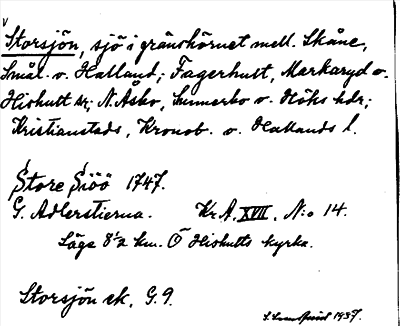 v
Storsjön, sjö i gränshörnet mell. Skåne,
Smål. o. Halland; Fagerhult, Markaryd o.
Hishult sr; N. Åsbo, Sunnerbo o. Höks hdr;
Kristianstads, Kronob. o. Hallands l.
Store Siöö 1747.
G. Adlerstierna. Kr. A. XVII. N:o 14.
Läge 8 1/2 km. Ö Hishults kyrka.
Storsjön ek. G. 9.
1937.